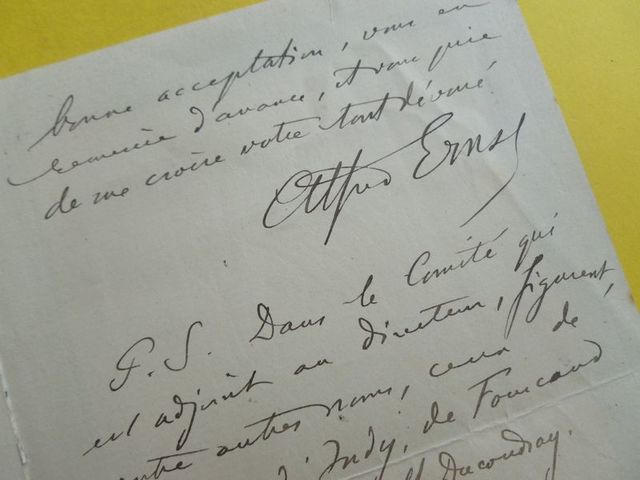 bonne acceptation, vous en
remercie d'avance, et vous prie
de me croire votre tout dévoué
Alfred Ernst
P.S. Dans le Comité qui
est adjoint au directeur, figurent,
entre autres noms, ceux de
d'Indy, de Fourcaud
Ducoudray.